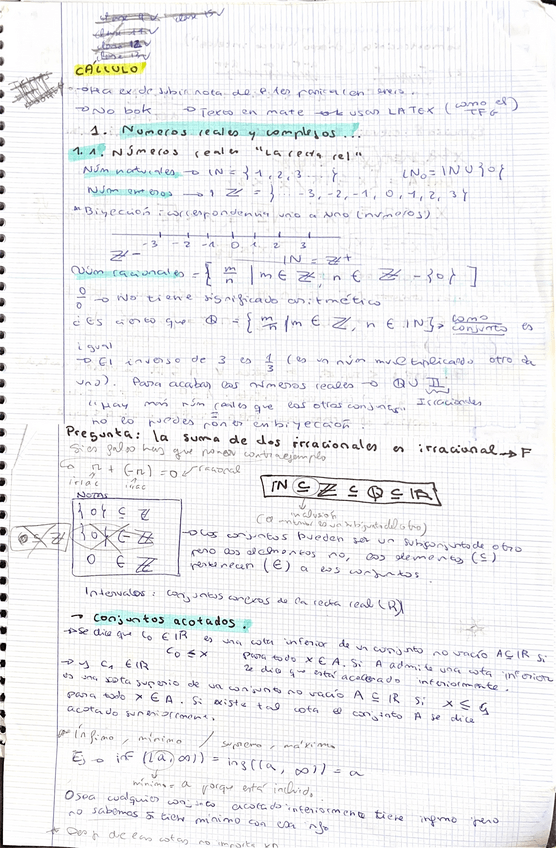 CÁLCULO
→ No bok → Texto en mate → usar LATEX (como el TFG)
1. Números reales y complejos...
1.1. Números reales "La recta rel"
Núm naturales → ℕ = {1, 2, 3 ... } ℕ₀ = ℕ ∪ {0}
Núm enteros → ℤ = { ... -3, -2, -1, 0, 1, 2, 3}
* Biyección: correspondencia uno a uno (números)
-3 -2 -1 0 1 2 3
ℤ- ℕ = ℤ+
Núm racionales = { m/n | m ∈ ℤ, n ∈ ℤ - {0} }
0/0 → No tiene significado aritmético
¿Es cierto que ℚ = { m/n | m ∈ ℤ, n ∈ ℕ}? como conjunto es
igual
→ El inverso de 3 es 1/3 (es un núm multiplicado otro da
uno). Para acabar los números reales → ℚ ∪ 𝕀
"Hay más núm reales que los otros conjuntos" Irracionales
no lo puedes poner en biyección.
Pregunta: la suma de dos irracionales es irracional → F
Si es falso hay que poner contraejemplo
π + (-π) = 0 ← racional
irrac irrac
ℕ ⊆ ℤ ⊆ ℚ ⊆ ℝ
inclusión
NOTAS
{0} ⊆ ℤ
{0} ∈ ℤ
0 ∈ ℤ
0 ⊆ ℤ
→ Los conjuntos pueden ser un subconjunto de otro
pero los elementos no, los elementos (⊆)
pertenecen (∈) a los conjuntos.
Intervalos: conjuntos conexos de la recta real (ℝ)
→ Conjuntos acotados.
→ se dice que c₀ ∈ ℝ es una cota inferior de un conjunto no vacío A ⊆ ℝ si
c₀ ≤ x para todo x ∈ A. Si A admite una cota inferior
se dice que está acotado inferiormente.
→ y c₁ ∈ ℝ
es una cota superior de un conjunto no vacío A ⊆ ℝ si x ≤ c₁
para todo x ∈ A. Si existe tal cota el conjunto A se dice
acotado superiormente.
* Ínfimo, mínimo / supremo, máximo
Ej → inf ([a, ∞)) = inf((a, ∞)) = a
mínimo = a porque está incluido
O sea cualquier conjunto acotado inferiormente tiene ínfimo pero
no sabemos si tiene mínimo con esa info